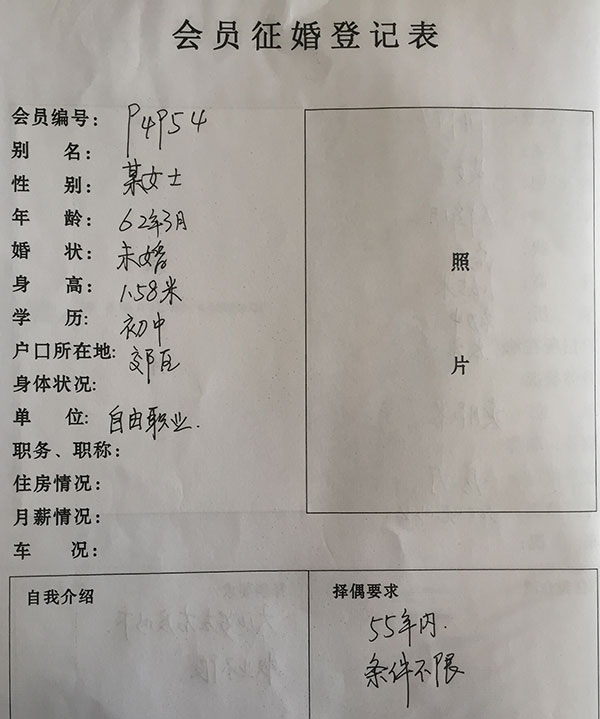 会员征婚登记表
会员编号: P4954
别 名:
性 别: 某女士
年 龄: 62年3月
婚 状: 未婚
身 高: 1.58米
学 历: 初中
户口所在地: 郊区
身体状况:
单 位: 自由职业.
职务、职称:
住房情况:
月薪情况:
车 况:
照
片
自我介绍
择偶要求
55年内.
条件不限